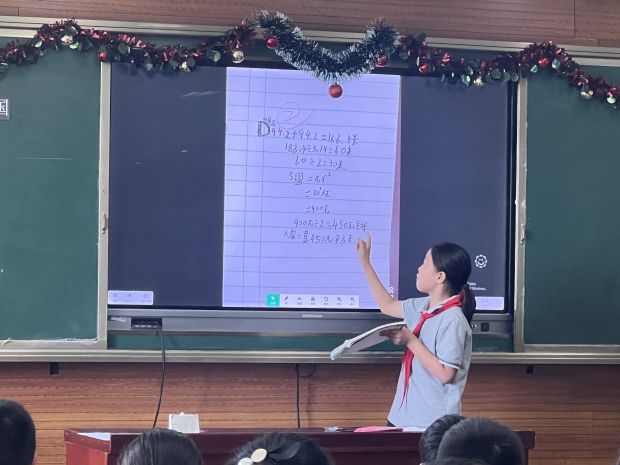 ②
94.2
94.2+94.2=188.4米
188.4÷3.14=60米
60÷2=30米
S圆=πr²
=30²×π
=900π
900π÷2=450π平方米
答:是450π平方米